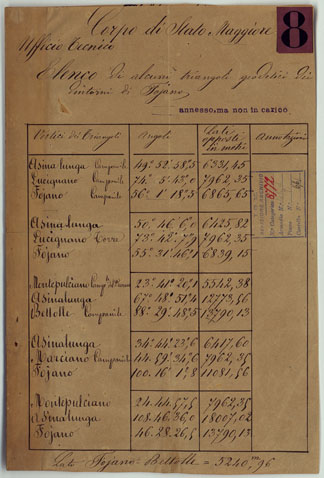 Corpo di Stato Maggiore
8
Ufficio Tecnico
Elenco di alcuni triangoli geodetici dei
dintorni di Fojano,
annesso, ma non in carico
Vertici dei Triangoli Angoli Lati opposti in metri Annotazioni
Asinalunga Campanile 49° 52' 58",5 6331,45
Lucignano Campanile 74° 5' 43",0 7962,35
Fojano Campanile 56° 1' 18",5 6865,65
Asinalunga 50° 46' 6",0 6425,82
Lucignano Torre 73° 42' 7",9 7962,35
Fojano 55° 31' 46",1 6839,15
Montepulciano 23° 41' 20",1 5542,38
Asinalunga 67° 48' 51",4 12773,56
Bettolle Campanile 88° 29' 48",5 13790,13
Asinalunga 34° 44' 23",6 6417,60
Marciano Campanile 44° 59' 34",6 7962,35
Fojano 100. 16' 1",8 11081,56
Montepulciano 24. 44. 57,5 7962,35
Asinalunga 108. 46. 36,0 18007,02
Fojano 46. 28. 26,5 13790,13
Lato Fojano - Bettolle = 5240,m 96